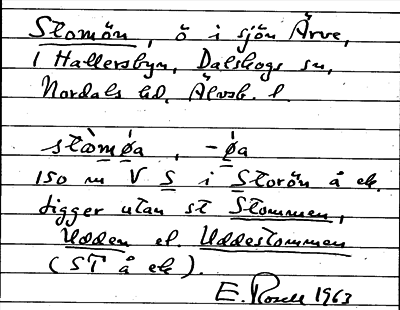 Stomön, ö i sjön Ärve,
i Hallersbyn, Dalskogs sn,
Nordals hd, Älvsb. l.
stòmǿa, -ǿa
150 m V S i Storön å ek.
Ligger utan st Stommen,
Udden el. Uddestommen
(ST å ek).
E. Rosell 1963